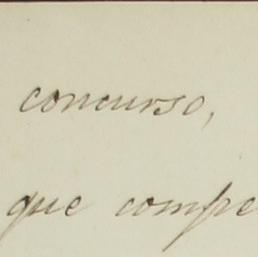 concurso,
que compe